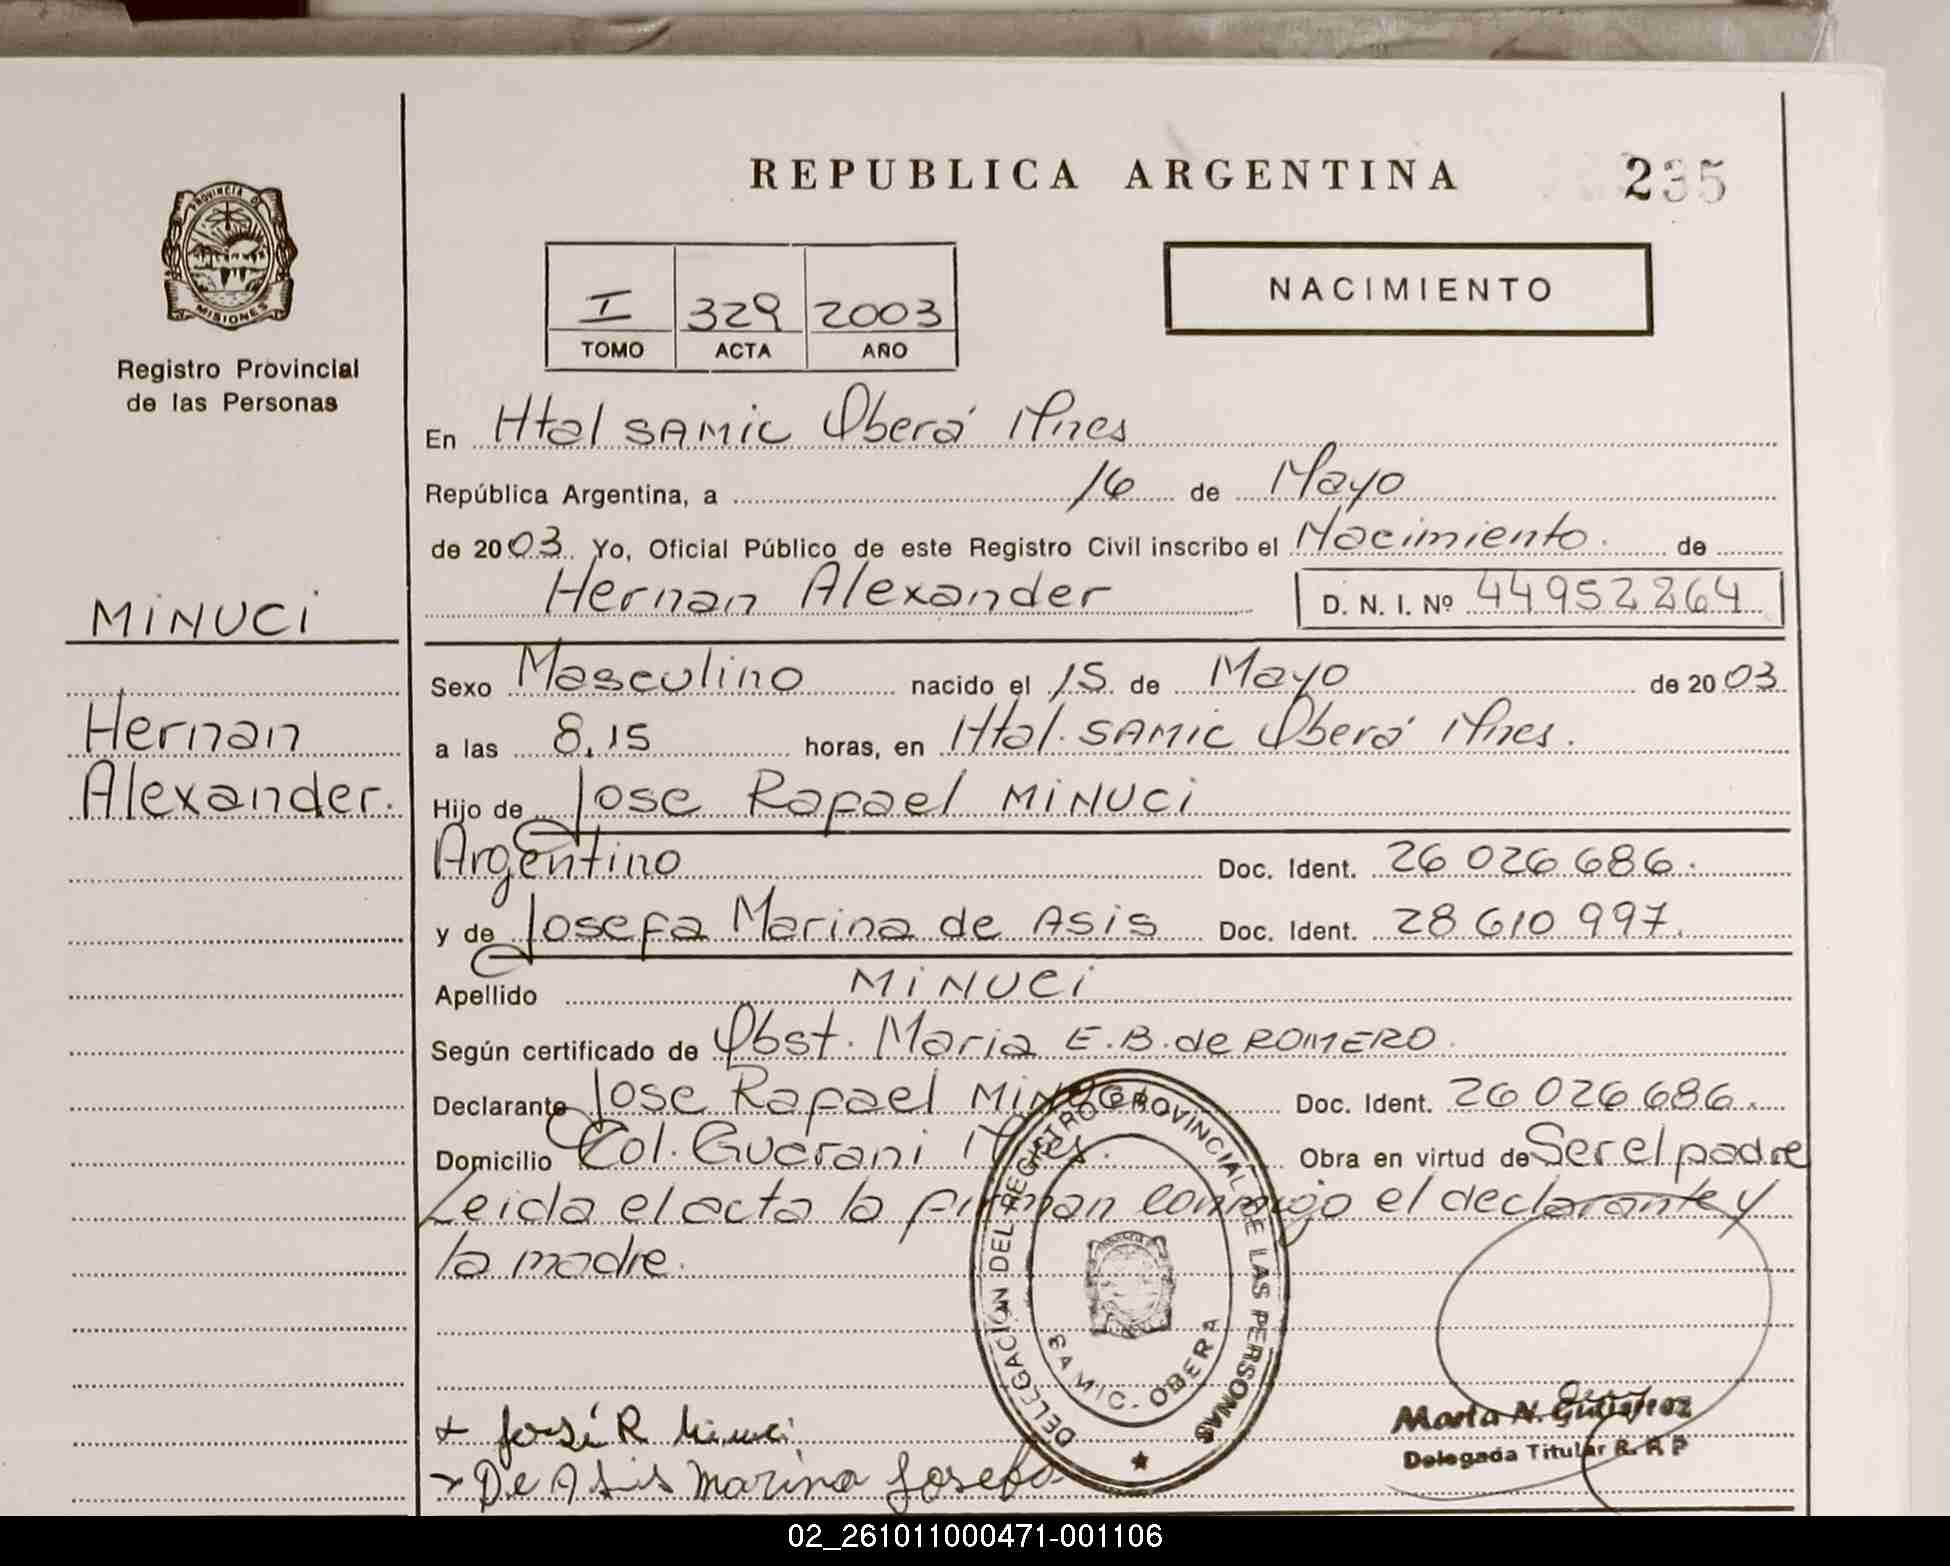 REPUBLICA ARGENTINA
235
PROVINCIA DE
MISIONES
Registro Provincial
de las Personas
I 329 2003
TOMO ACTA AÑO
NACIMIENTO
En Htal SAMIC Oberá Mnes
República Argentina, a 16 de Mayo
de 2003 Yo, Oficial Público de este Registro Civil inscribo el Nacimiento. de
Hernan Alexander D. N. I. Nº 44952264
MINUCI
Hernan
Alexander.
Sexo Masculino nacido el 15 de Mayo de 2003
a las 8.15 horas, en Htal. SAMIC Oberá Mnes.
Hijo de Jose Rafael MINUCI
Argentino Doc. Ident. 26 026 686.
y de Josefa Marina de Asis Doc. Ident. 28 610 997.
Apellido MINUCI
Según certificado de Obst. Maria E. B. de ROMERO.
Declarante Jose Rafael MINUCI Doc. Ident. 26 026 686.
Domicilio Col. Guarani Mnes. Obra en virtud de Ser el padre
Leida el acta la firman conmigo el declarante y
la madre.
DELEGACIÓN DEL REGISTRO PROVINCIAL DE LAS PERSONAS
SAMIC - OBERA
+ José R Minuci
De Asis Marina Josefa
Marta N. Gutierrez
Delegada Titular R. P. P
02_261011000471-001106